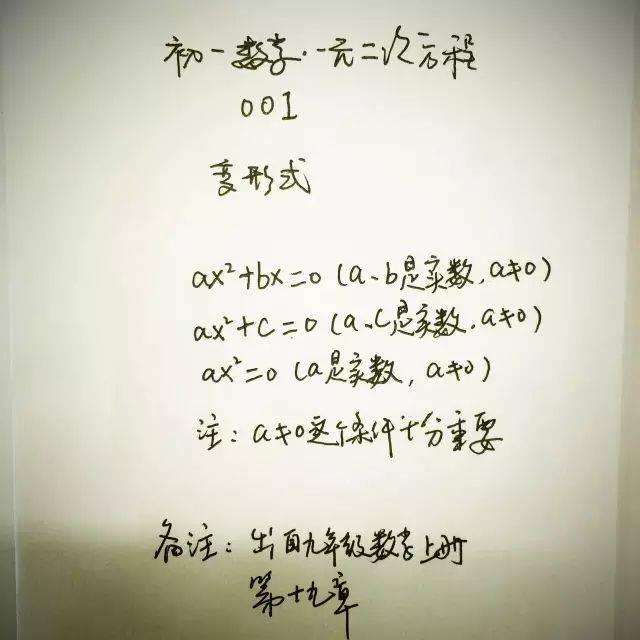 初一数学·一元二次方程
001
变形式
ax²+bx=0(a、b是实数,a≠0)
ax²+c=0(a、c是实数,a≠0)
ax²=0(a是实数,a≠0)
注:a≠0这个条件十分重要
备注:出自九年级数学上册
第十九章